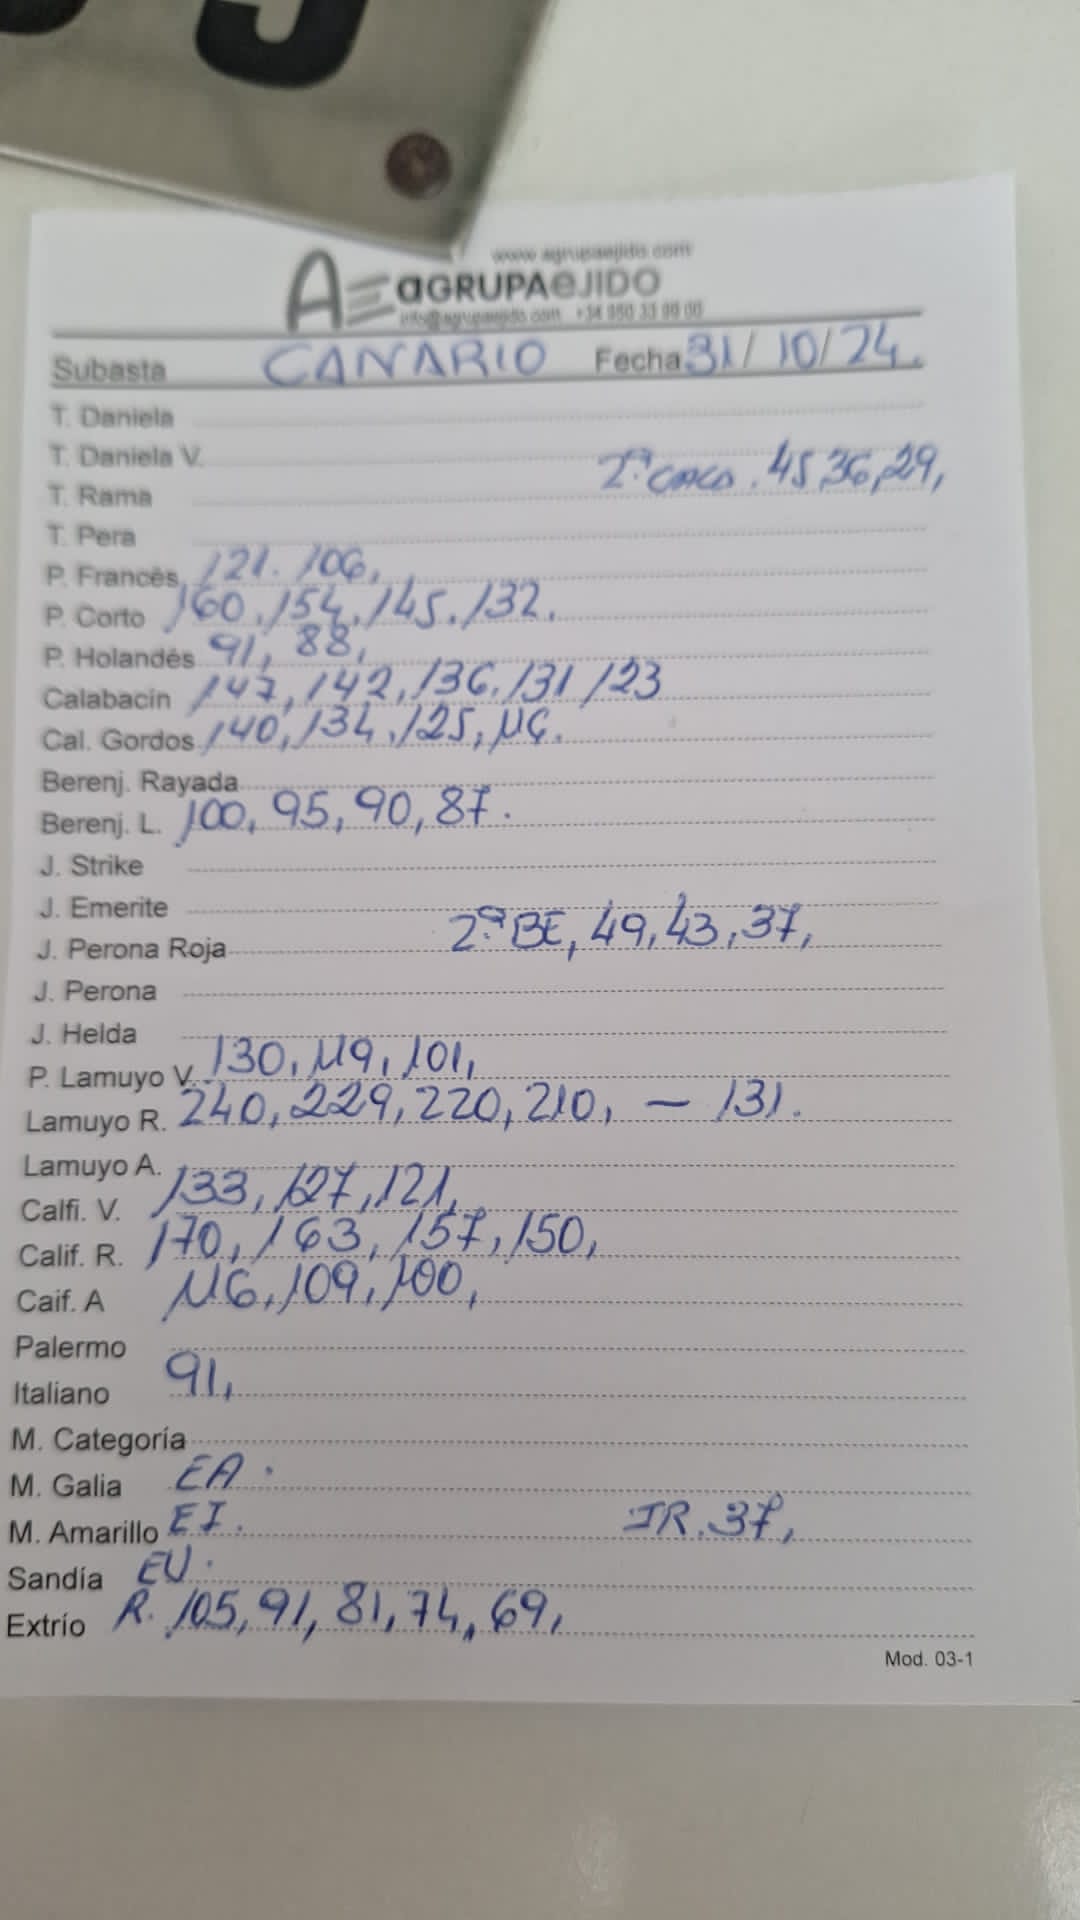 www.agrupaejido.com
AE aGRUPAeJIDO
info@agrupaejido.com +34 950 33 99 00
Subasta CANARIO Fecha 31/10/24.
T. Daniela
T. Daniela V.
2ª CACO. 45,36,29,
T. Rama
T. Pera
P. Francés 121. 106,
P. Corto 160,154,145.132.
P. Holandés 91, 88,
Calabacín 147,142,136,131 123
Cal. Gordos 140,134,125,116.
Berenj. Rayada
Berenj. L. 100,95,90,87.
J. Strike
J. Emerite
J. Perona Roja 2ª BE, 49,43,37,
J. Perona
J. Helda
P. Lamuyo V. 130,119,101,
Lamuyo R. 240,229,220,210, — 131.
Lamuyo A.
Calfi. V. 133,127,121,
Calif. R. 170,163,157,150,
Caif. A 116,109,100,
Palermo
Italiano 91,
M. Categoría
M. Galia EA.
M. Amarillo EI. IR.37,
Sandía EU.
Extrío R. 105,91,81,74,69,
Mod. 03-1